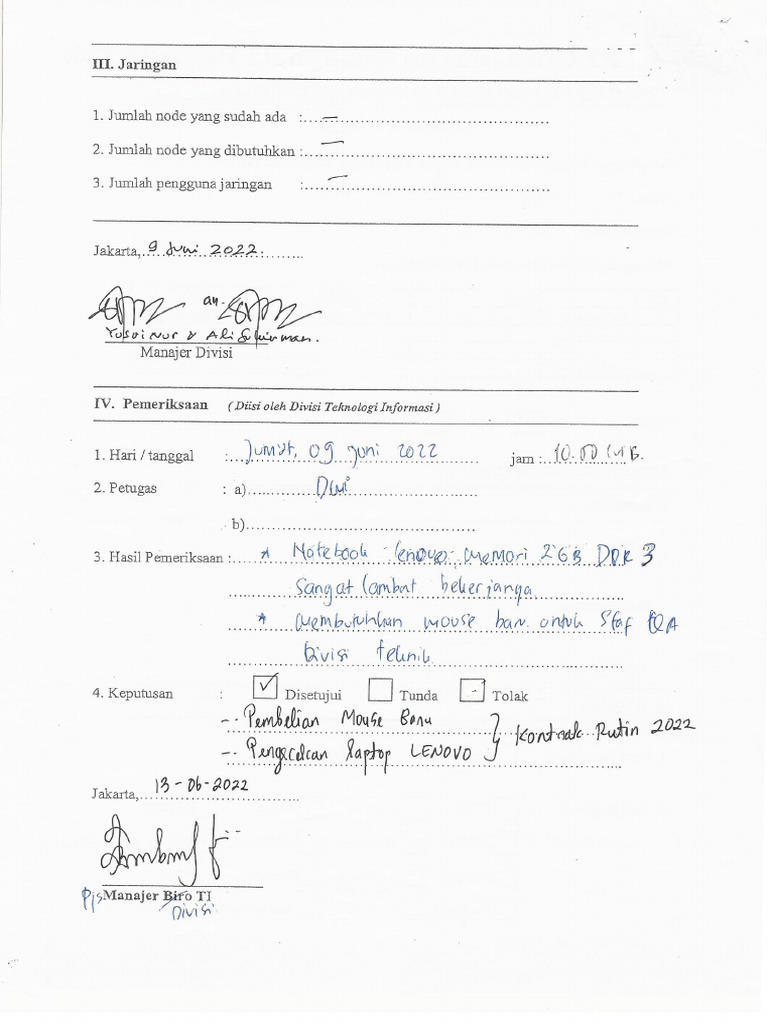 III. Jaringan
1. Jumlah node yang sudah ada :.....–.....
2. Jumlah node yang dibutuhkan :.....–.....
3. Jumlah pengguna jaringan :.....–.....
Jakarta, 9 Juni 2022
an.
Yusvi Nur & Ali
Manajer Divisi
IV. Pemeriksaan ( Diisi oleh Divisi Teknologi Informasi )
1. Hari / tanggal : Jumat, 09 Juni 2022 jam : 10.00 WIB.
2. Petugas : a) Dwi
b)
3. Hasil Pemeriksaan : * Notebook lenovo memori 2GB DDR 3
sangat lambat bekerjanya.
* Membutuhkan mouse baru untuk Staf QA
Divisi teknik.
4. Keputusan : ✓ Disetujui Tunda Tolak
- Pembelian Mouse Baru
- Pengecekan laptop LENOVO } Kontrak Rutin 2022
Jakarta, 13-06-2022
Pjs Manajer Biro TI
Divisi